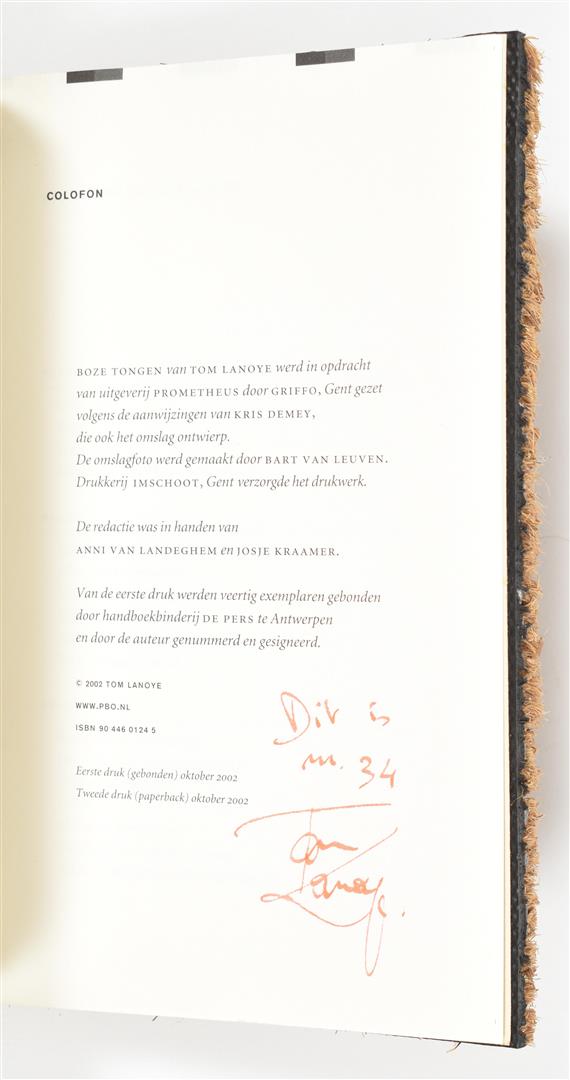 COLOFON
BOZE TONGEN van TOM LANOYE werd in opdracht
van uitgeverij PROMETHEUS door GRIFFO, Gent gezet
volgens de aanwijzingen van KRIS DEMEY,
die ook het omslag ontwierp.
De omslagfoto werd gemaakt door BART VAN LEUVEN.
Drukkerij IMSCHOOT, Gent verzorgde het drukwerk.
De redactie was in handen van
ANNI VAN LANDEGHEM en JOSJE KRAAMER.
Van de eerste druk werden veertig exemplaren gebonden
door handboekbinderij DE PERS te Antwerpen
en door de auteur genummerd en gesigneerd.
© 2002 TOM LANOYE
WWW.PBO.NL
ISBN 90 446 0124 5
Eerste druk (gebonden) oktober 2002
Tweede druk (paperback) oktober 2002
Dit is
nr. 34
Tom
Lanoye.